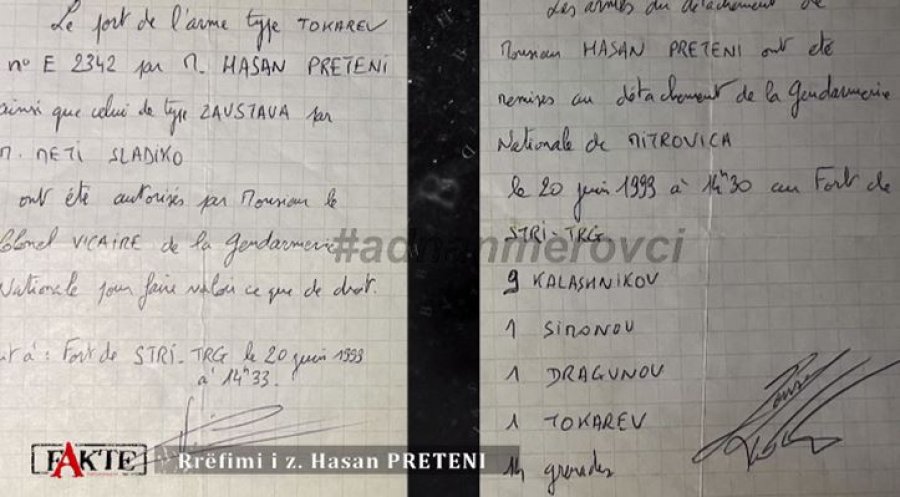 Le port de l'arme type TOKAREV
n° E 2342 par M. HASAN PRETENI
ainsi que celui de type ZAUSTAVA par
M. METI SLADIKO
ont été autorisés par Monsieur le
Colonel VICAIRE de la Gendarmerie
Nationale pour faire valoir ce que de droit.
à : Fort de STRI-TRG le 20 juin 1999
à 14h33.
Les armes du détachement de
Monsieur HASAN PRETENI ont été
remises au détachement de la Gendarmerie
Nationale de MITROVICA
le 20 juin 1999 à 14h30 au Fort de
STRI-TRG
9 KALASHNIKOV
1 SIMONOV
1 DRAGUNOV
1 TOKAREV
14 grenades
#adnanmerovci
FAKTE
Rrëfimi i z. Hasan PRETENI